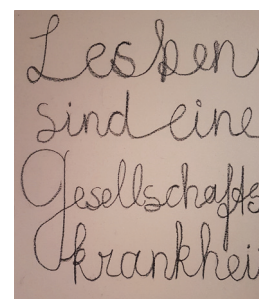 Lesben
sind eine
Gesellschafts
krankhei